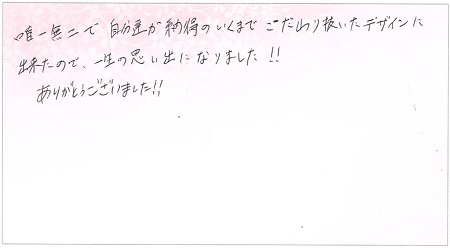 唯一無二で自分達が納得のいくまでこだわり抜いたデザインに
出来たので、一生の思い出になりました!!
ありがとうございました!!